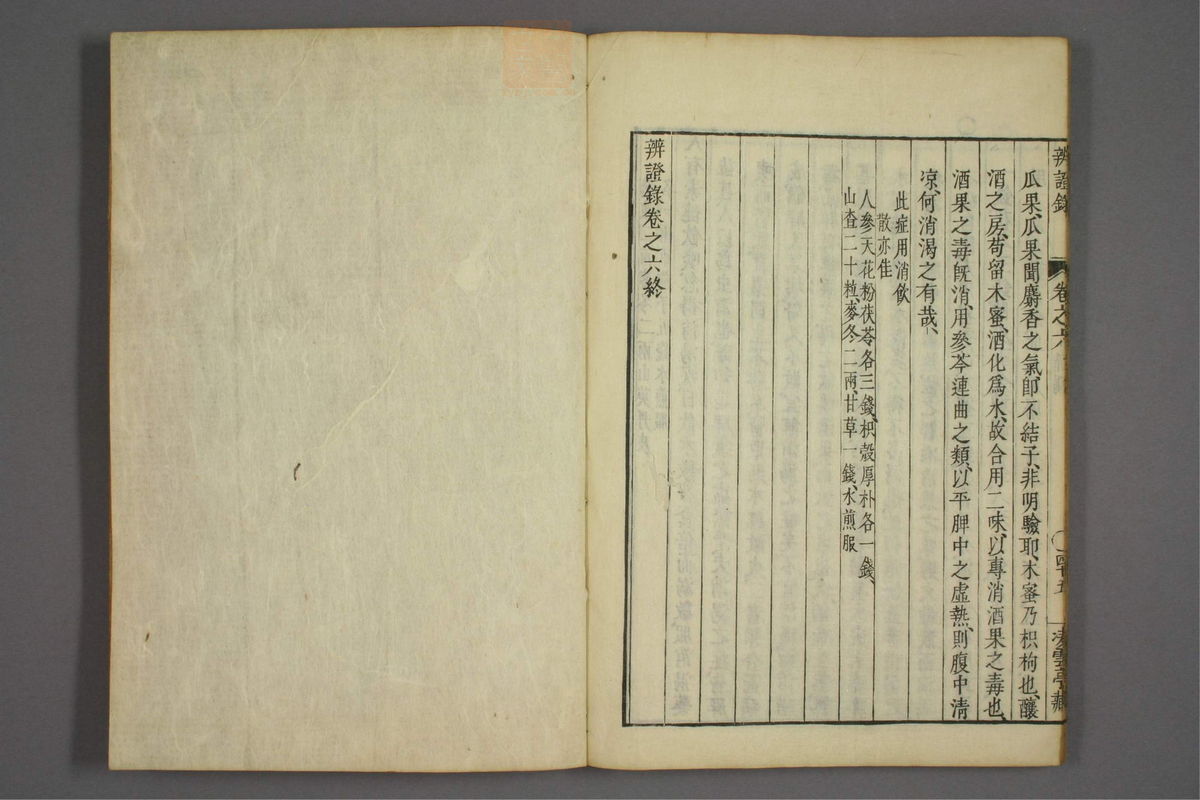 辨證錄 卷之六 四十五
瓜果、瓜果聞麝香之氣、卽不結子、非明驗耶、木蜜乃枳枸也、釀
酒之房、苟留木蜜、酒化爲水、故合用二味、以專消酒果之毒也、
酒果之毒旣消、用參苓連曲之類、以平脾中之虛熱、則腹中淸
凉、何消渴之有哉、
此症用消飮
散亦佳
人參天花粉茯苓各三錢、枳殼厚朴各一錢、
山查二十粒、麥冬二兩、甘草一錢、水煎服
辨證錄卷之六終